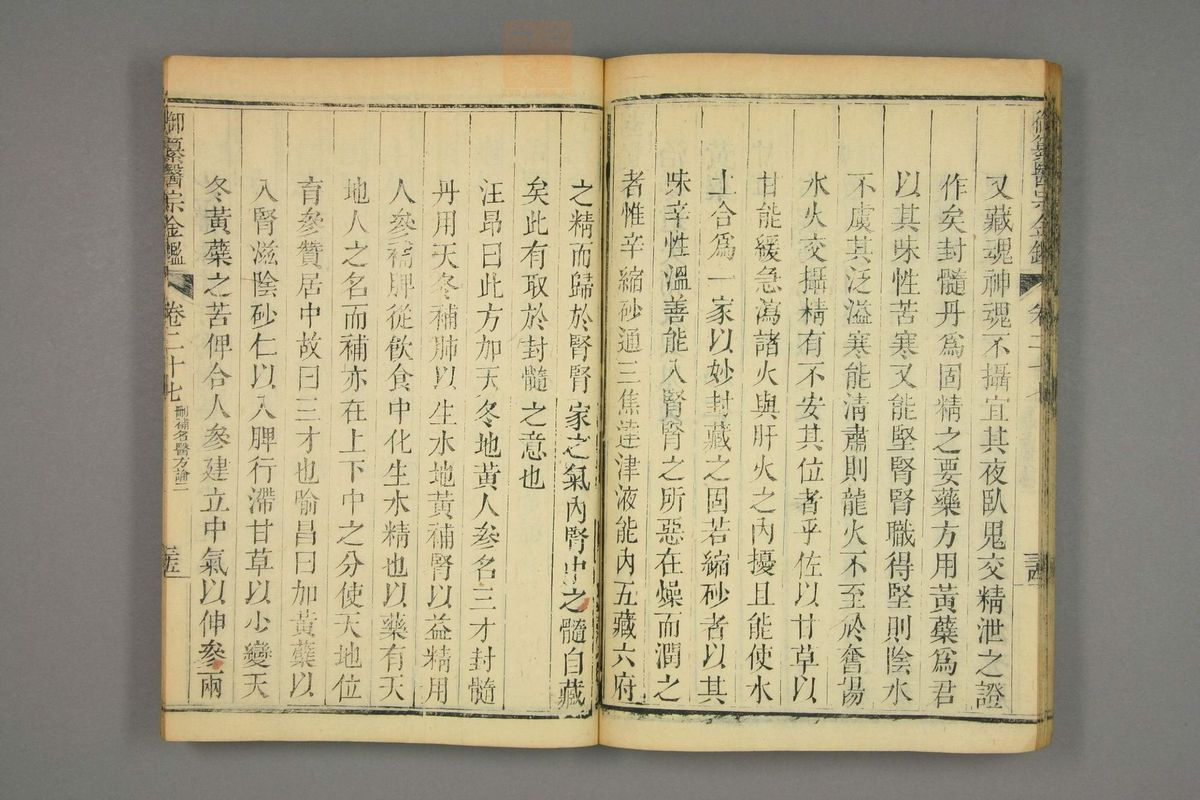 又藏魂神魂不攝宜其夜臥鬼交精泄之證
作矣封髓丹爲固精之要藥方用黃蘗爲君
以其味性苦寒又能堅腎腎職得堅則陰水
不虞其泛溢寒能淸肅則龍火不至於奮揚
水火交攝精有不安其位者乎佐以甘草以
甘能緩急瀉諸火與肝火之內擾且能使水
土合爲一家以妙封藏之固若縮砂者以其
味辛性溫善能入腎腎之所惡在燥而潤之
者惟辛縮砂通三焦達津液能內五藏六府
之精而歸於腎腎家之氣內腎中之髓自藏
矣此有取於封髓之意也
汪昂曰此方加天冬地黃人參名三才封髓
丹用天冬補肺以生水地黃補腎以益精用
人參補脾從飮食中化生水精也以藥有天
地人之名而補亦在上下中之分使天地位
育參贊居中故曰三才也喻昌曰加黃蘗以
入腎滋陰砂仁以入脾行滯甘草以少變天
冬黃蘗之苦俾合人參建立中氣以伸參兩
御纂醫宗金鑑
卷二十七
刪補名醫方論二